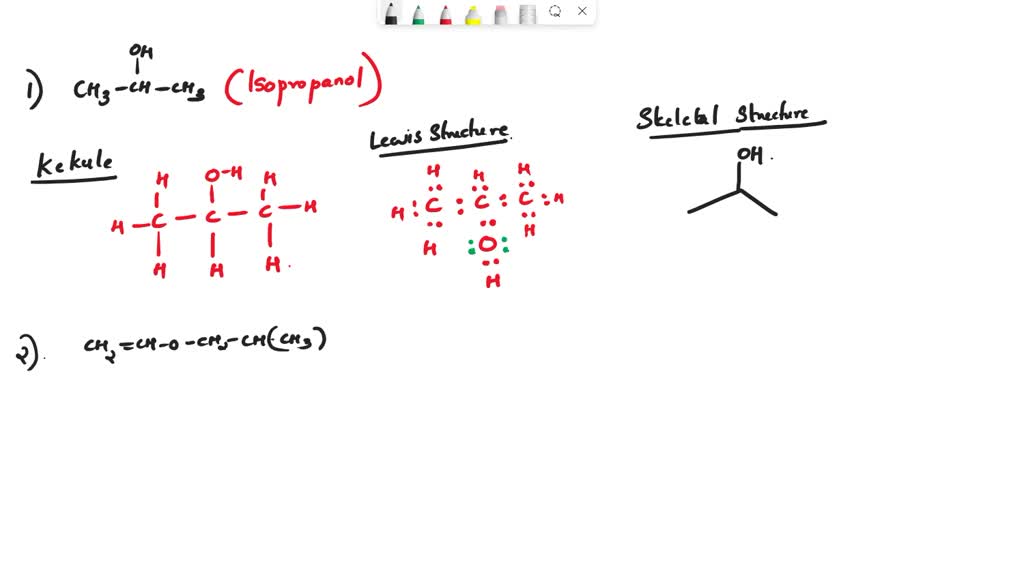 OH
1) CH3-CH-CH3 (Isopropanol)
Kekule
H O-H H
H-C-C-C-H
H H H.
Lewis Structure.
H H H
H:C:C:C:H
H :O: H
H
Skeletal Structure
OH.
2). CH2=CH-O-CH2-CH(-CH3)